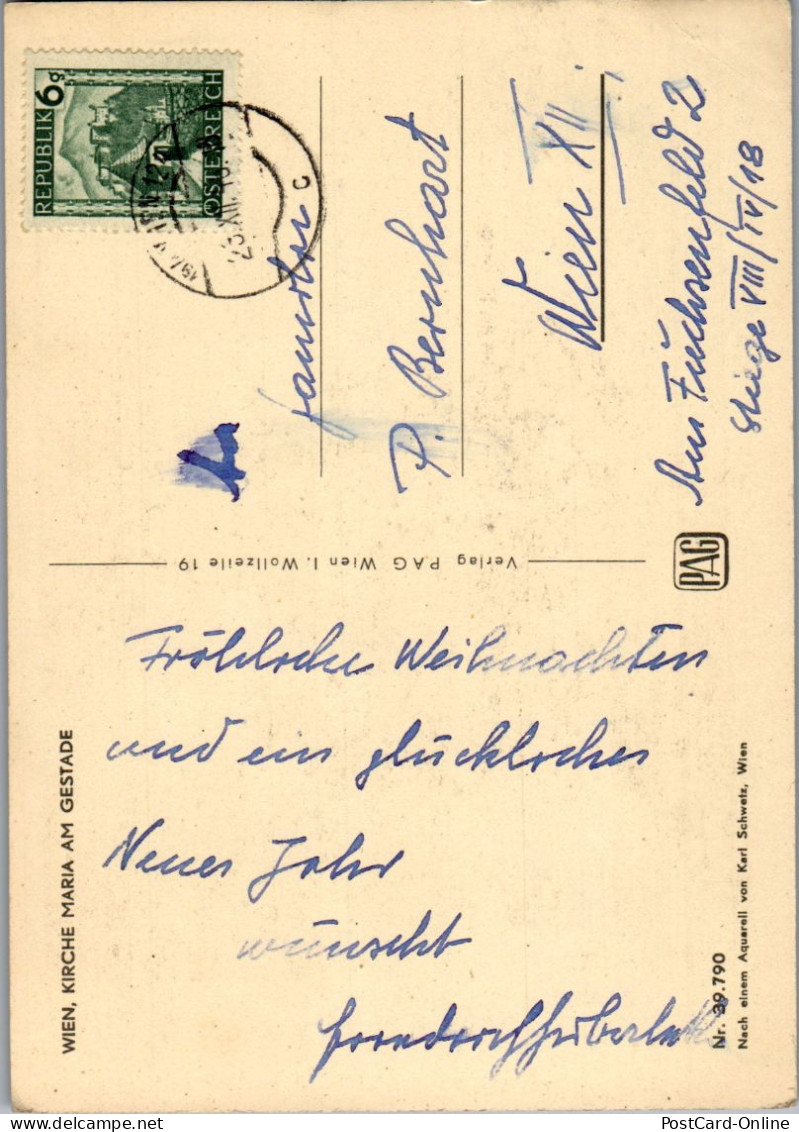 REPUBLIK 6g
ÖSTERREICH
23.XII.
c
P. Bernhart
Wien XII.
Am Fuchsenfeld 2
Stiege VIII/IV/18
Verlag PAG Wien I. Wollzeile 19
PAG
WIEN, KIRCHE MARIA AM GESTADE
Fröhliche Weihnachten
und ein glückliches
Neues Jahr
wünscht
Nr. 39.790
Nach einem Aquarell von Karl Schwetz, Wien
PostCard-Online